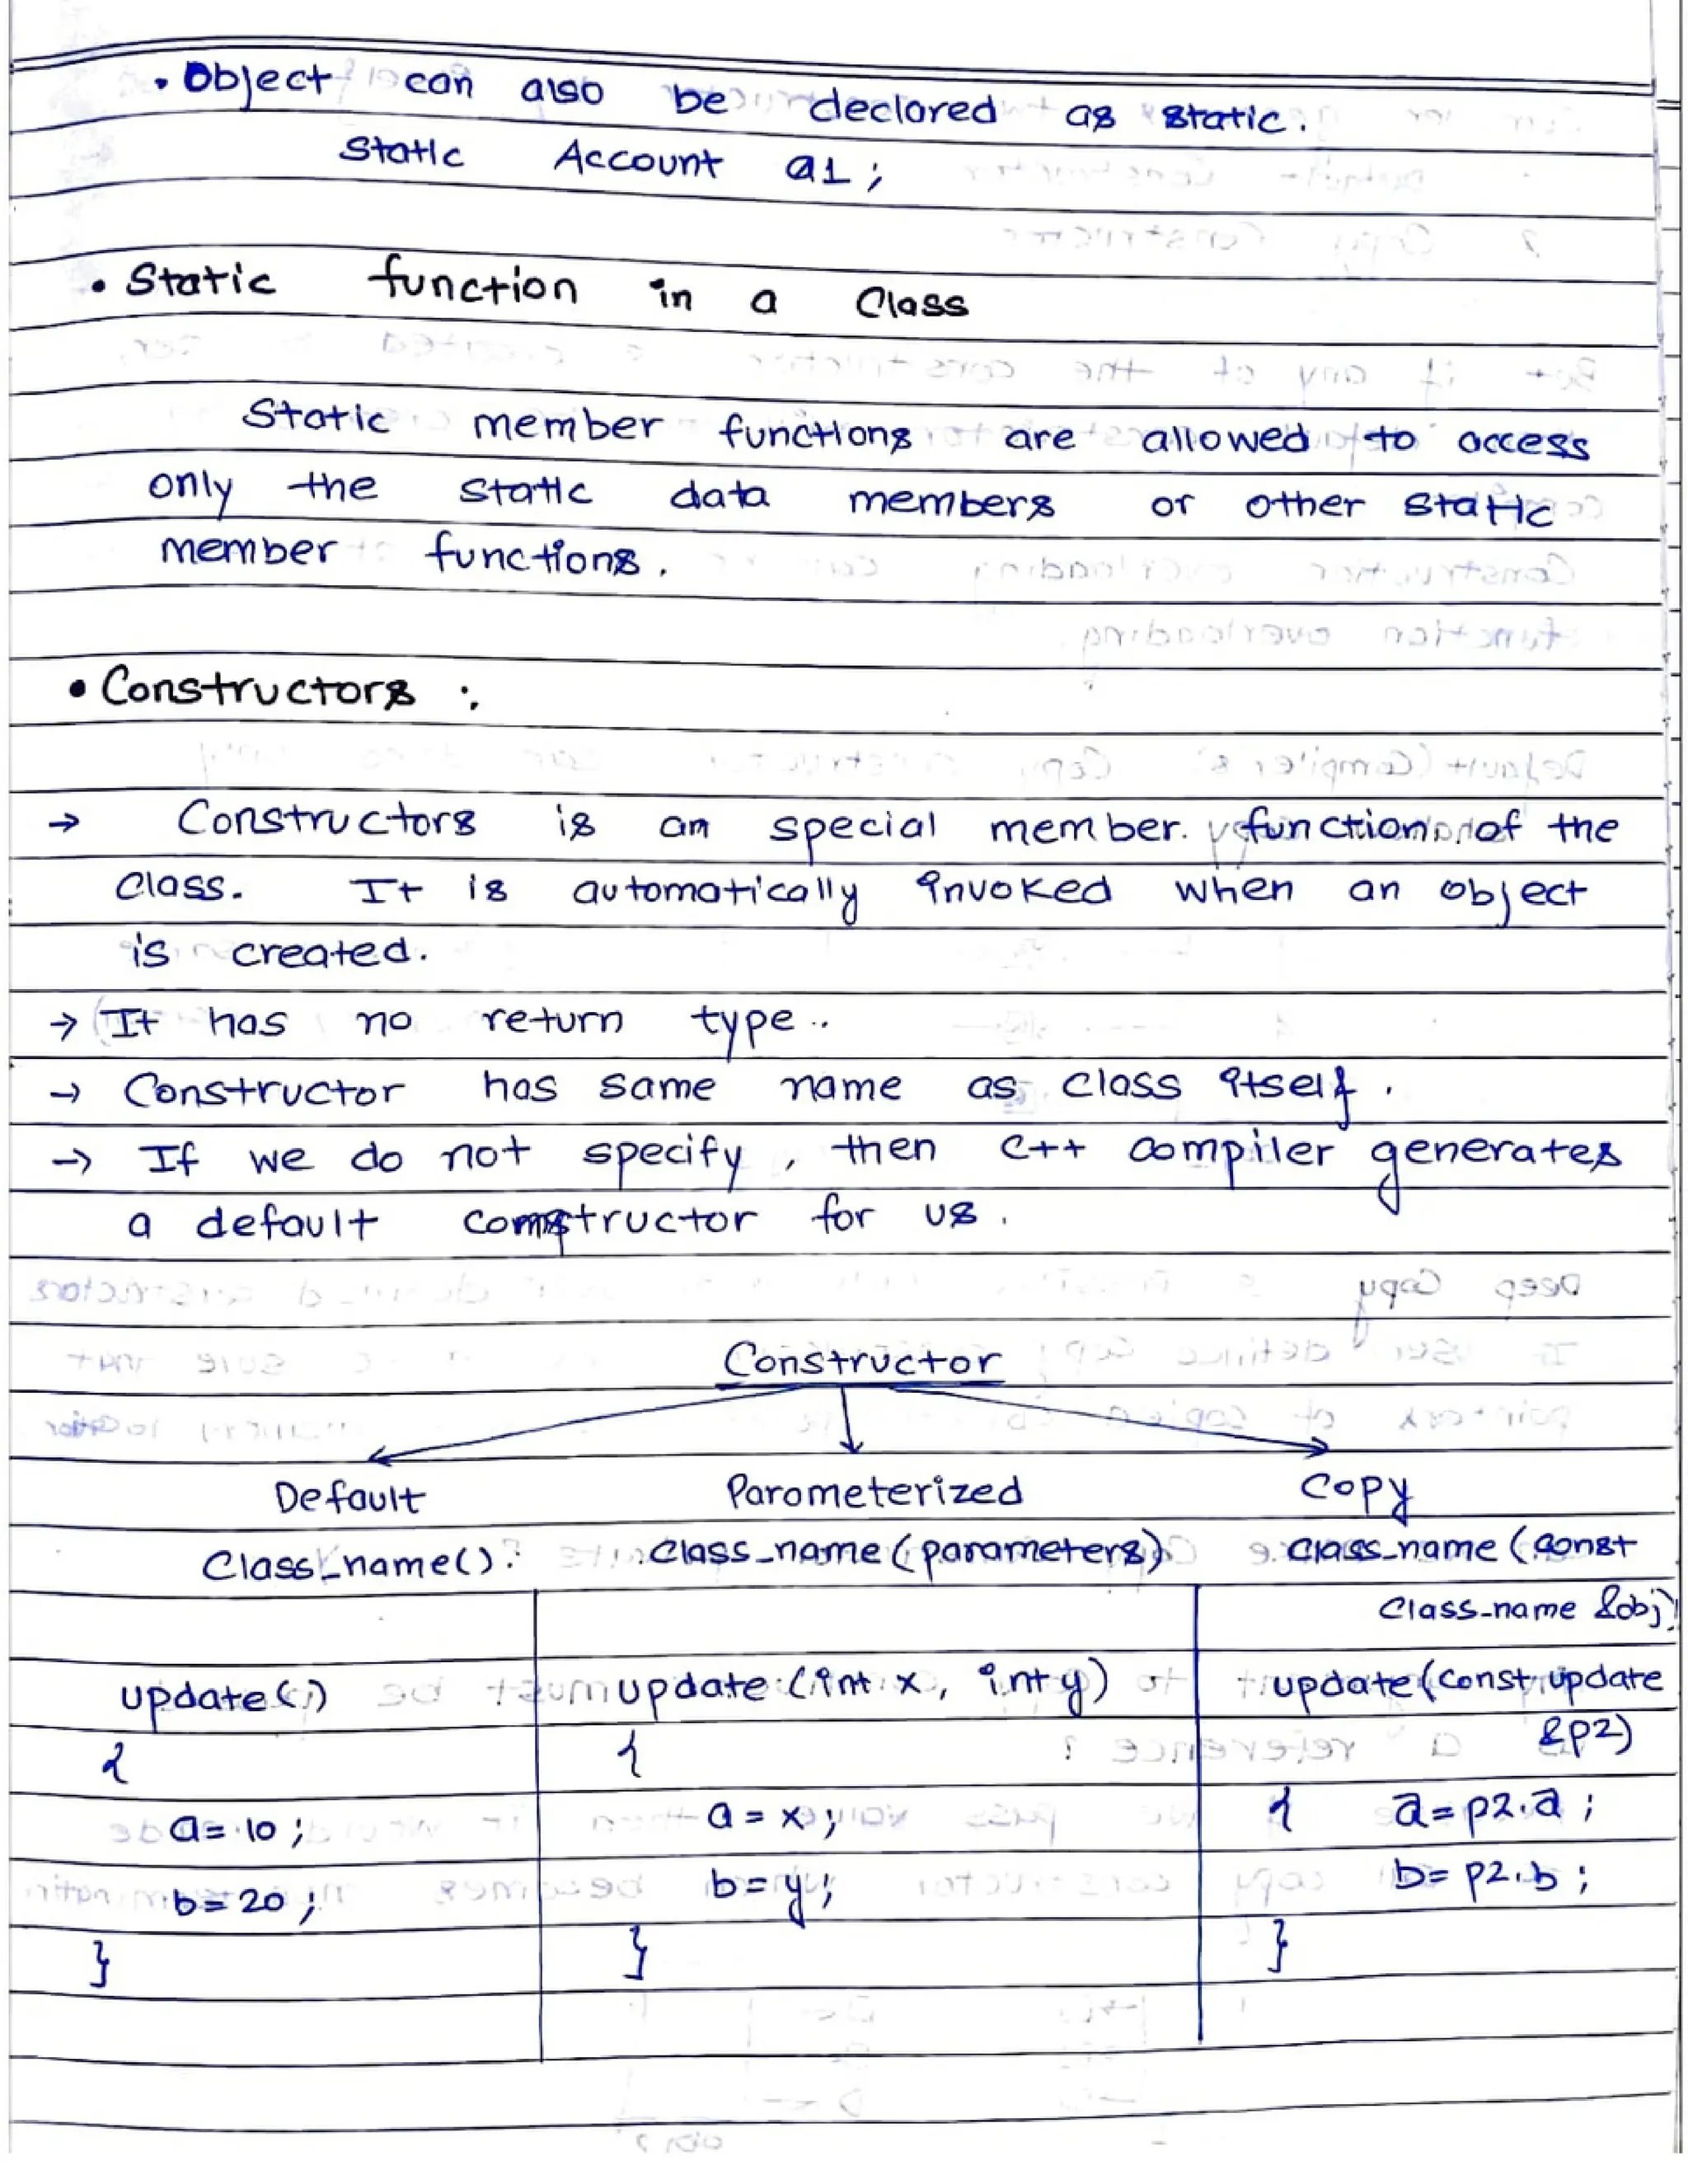 • Object can also be declared as static.
Static Account a1;
• Static function in a Class
Static member functions are allowed to access
only the static data members or other static
member functions.
• Constructors :
→ Constructors is an special member. function of the
Class. It is automatically invoked when an object
is created.
→ It has no return type..
→ Constructor has same name as class itself.
→ If we do not specify, then C++ compiler generates
a default constructor for us.
Constructor
Default Parameterized Copy
Class_name() class_name (parameters) class_name (const
Class_name &obj)
update() update (int x, int y) update (const update
&p2)
{ {
a = 10; a = x; { a = p2.a;
b = 20; b = y; b = p2.b;
} } }